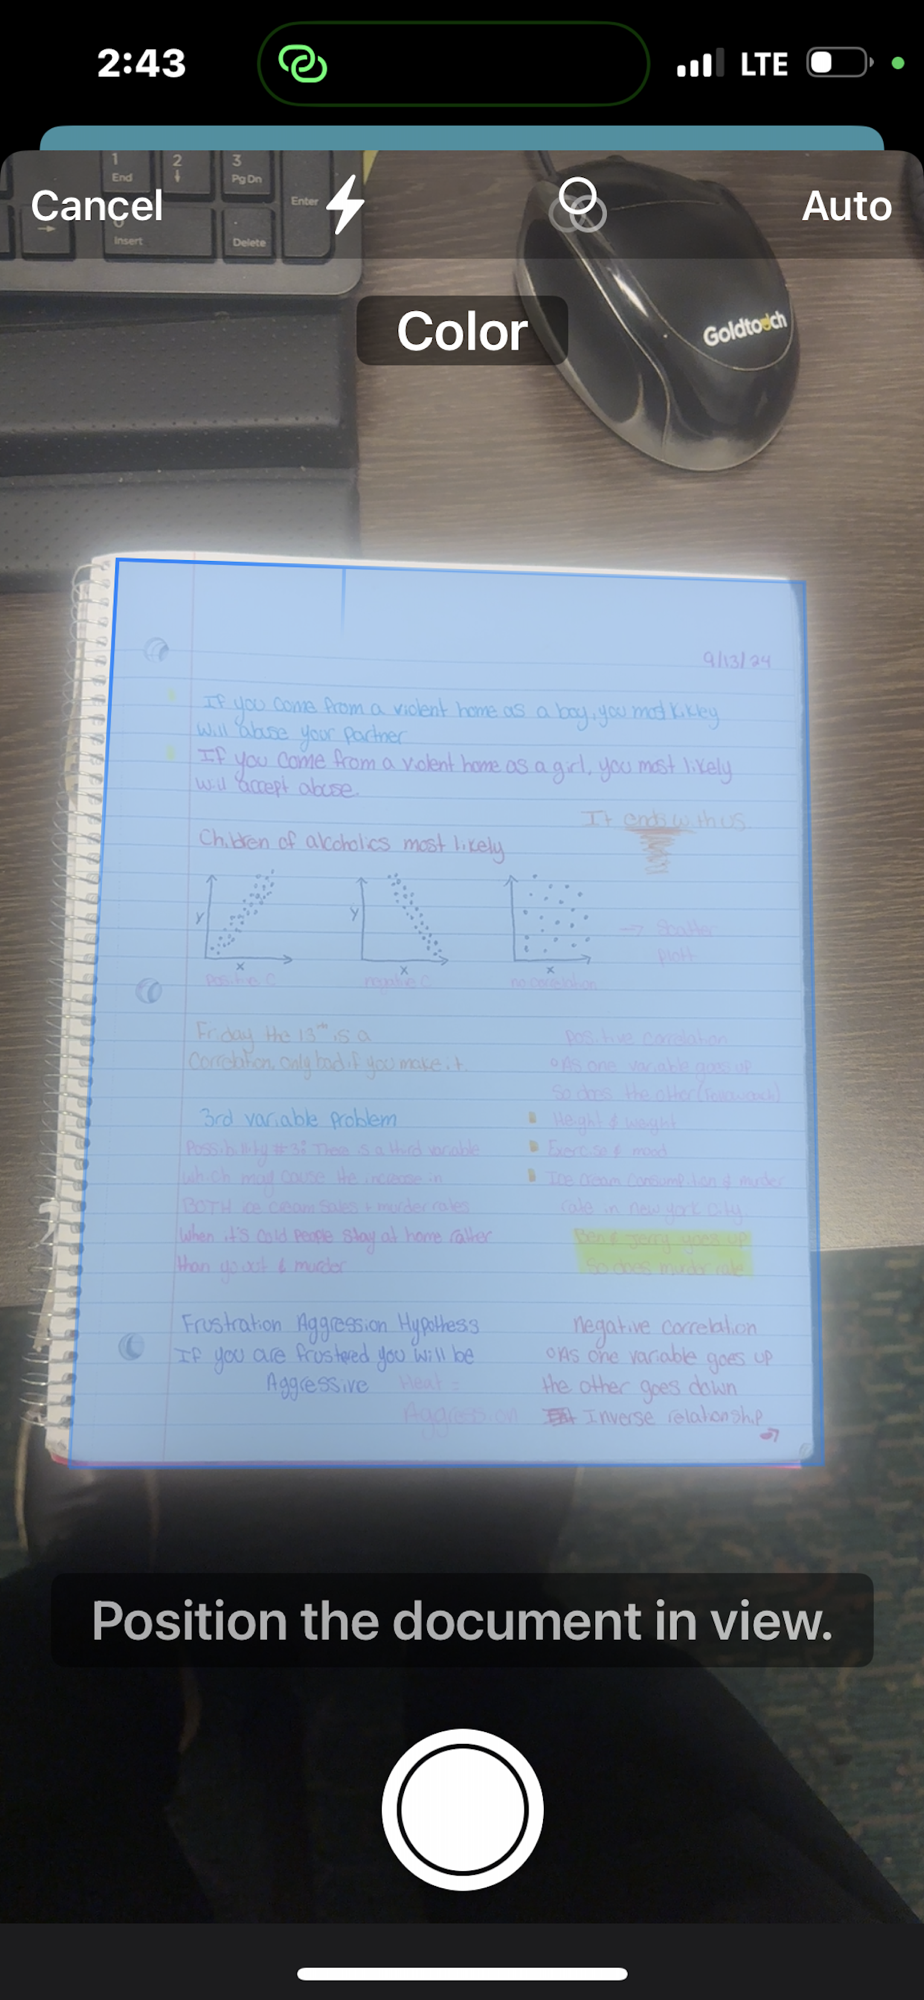 2:43
LTE
1
End
2
3
Pg Dn
Enter
Insert
Delete
Cancel
Auto
Color
Goldtouch
9/13/24
If you come from a violent home as a boy, you most likley
will abuse your partner
If you come from a violent home as a girl, you most likely
will accept abuse.
It ends with us
Children of alcoholics most likely
y
x
positive C
y
x
negative C
x
no correlation
→ Scatter
plott
Friday the 13th is a
Correlation, only bad if you make it.
3rd variable problem
Possibility #3: There is a third variable
which may cause the increase in
BOTH ice cream sales + murder rates
when it's cold people stay at home rather
than go out & murder
Frustration Aggression Hypothess
If you are frustered you will be
Aggressive Heat =
Aggression
positive correlation
As one variable goes up
So does the other
Height & weight
Exercise & mood
Ice cream consumption & murder
rate in new york city.
Ben & Jerry goes up
So does murder rate
negative correlation
As one variable goes up
the other goes down
Inverse relationship
Position the document in view.